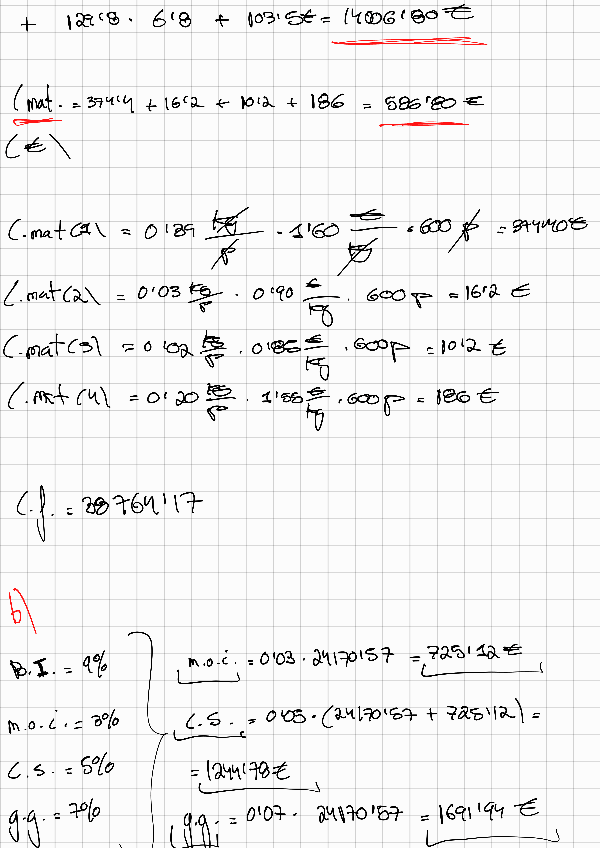 + 129'8 · 6'8 + 103'5€ = 14006'80 €
C mat. = 374'4 + 16'2 + 10'2 + 186 = 586'80 €
(€)
C.mat(1) = 0'39 kg/p · 1'60 €/kg · 600 p = 374'40€
C.mat(2) = 0'03 kg/p · 0'90 €/kg · 600 p = 16'2 €
C.mat(3) = 0'02 kg/p · 0'85 €/kg · 600p = 10'2 €
C.mat(4) = 0'20 kg/p · 1'55 €/kg · 600p = 186 €
C.f. = 38764'17
b)
B.I. = 9%
m.o.i. = 0'03 · 24170'57 = 725'12 €
m.o.i. = 3%
C.S. = 0'05 · (24170'57 + 725'12) =
C.S. = 5%
= 1244'78 €
g.g. = 7%
g.g. = 0'07 · 24170'57 = 1691'94 €